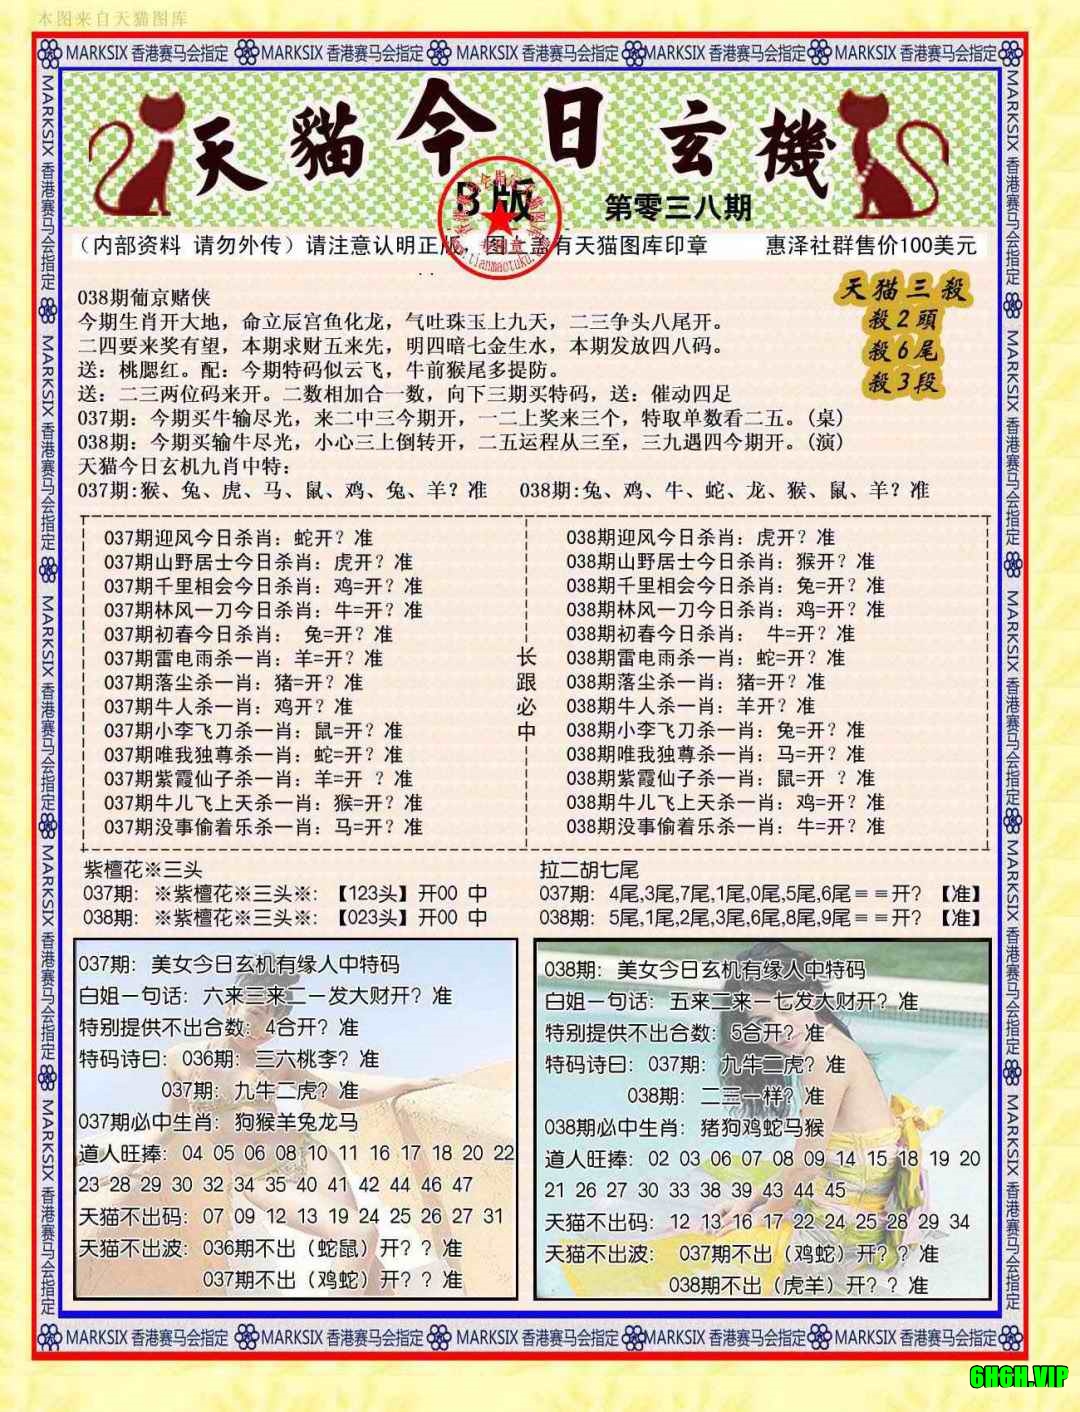 本图来自天猫图库
MARKSIX 香港赛马会指定 MARKSIX 香港赛马会指定 MARKSIX 香港赛马会指定 MARKSIX 香港赛马会指定 MARKSIX 香港赛马会指定
MARKSIX 香港赛马会指定 MARKSIX 香港赛马会指定 MARKSIX 香港赛马会指定 MARKSIX 香港赛马会指定 MARKSIX 香港赛马会指定
MARKSIX 香港赛马会指定 MARKSIX 香港赛马会指定 MARKSIX 香港赛马会指定 MARKSIX 香港赛马会指定 MARKSIX 香港赛马会指定
天貓今日玄機
B版
第零三八期
www.tianmaotuku.
(内部资料 请勿外传)请注意认明正版,图上盖有天猫图库印章 惠泽社群售价100美元
天猫三殺
殺2頭
殺6尾
殺3段
038期葡京赌侠
今期生肖开大地，命立辰宫鱼化龙，气吐珠玉上九天，二三争头八尾开。
二四要来奖有望，本期求财五来先，明四暗七金生水，本期发放四八码。
送：桃腮红。配：今期特码似云飞，牛前猴尾多提防。
送：二三两位码来开。二数相加合一数，向下三期买特码，送：催动四足
037期：今期买牛输尽光，来二中三今期开，一二上奖来三个，特取单数看二五。(桌)
038期：今期买输牛尽光，小心三上倒转开，二五运程从三至，三九遇四今期开。(演)
天猫今日玄机九肖中特：
037期:猴、兔、虎、马、鼠、鸡、兔、羊？准 038期:兔、鸡、牛、蛇、龙、猴、鼠、羊？准
037期迎风今日杀肖：蛇开？准
037期山野居士今日杀肖：虎开？准
037期千里相会今日杀肖：鸡=开？准
037期林风一刀今日杀肖：牛=开？准
037期初春今日杀肖： 兔=开？准
037期雷电雨杀一肖：羊=开？准
037期落尘杀一肖：猪=开？准
037期牛人杀一肖：鸡开？准
037期小李飞刀杀一肖：鼠=开？准
037期唯我独尊杀一肖：蛇=开？准
037期紫霞仙子杀一肖：羊=开 ？准
037期牛儿飞上天杀一肖：猴=开？准
037期没事偷着乐杀一肖：马=开？准
长跟必中
038期迎风今日杀肖：虎开？准
038期山野居士今日杀肖：猴开？准
038期千里相会今日杀肖：兔=开？准
038期林风一刀今日杀肖：鸡=开？准
038期初春今日杀肖： 牛=开？准
038期雷电雨杀一肖：蛇=开？准
038期落尘杀一肖：猪=开？准
038期牛人杀一肖：羊开？准
038期小李飞刀杀一肖：兔=开？准
038期唯我独尊杀一肖：马=开？准
038期紫霞仙子杀一肖：鼠=开 ？准
038期牛儿飞上天杀一肖：鸡=开？准
038期没事偷着乐杀一肖：牛=开？准
紫檀花※三头
037期：※紫檀花※三头※：【123头】开00 中
038期：※紫檀花※三头※：【023头】开00 中
拉二胡七尾
037期：4尾,3尾,7尾,1尾,0尾,5尾,6尾==开？【准】
038期：5尾,1尾,2尾,3尾,6尾,8尾,9尾==开？【准】
037期：美女今日玄机有缘人中特码
白姐一句话：六来三来二一发大财开？准
特别提供不出合数：4合开？准
特码诗曰：036期：三六桃李？准
037期：九牛二虎？准
037期必中生肖：狗猴羊兔龙马
道人旺捧：04 05 06 08 10 11 16 17 18 20 22
23 28 29 30 32 34 35 40 41 42 44 46 47
天猫不出码：07 09 12 13 19 24 25 26 27 31
天猫不出波：036期不出（蛇鼠）开？？准
037期不出（鸡蛇）开？？准
038期：美女今日玄机有缘人中特码
白姐一句话：五来二来一七发大财开？准
特别提供不出合数：5合开？准
特码诗曰：037期：九牛二虎？准
038期：二三一样？准
038期必中生肖：猪狗鸡蛇马猴
道人旺捧：02 03 06 07 08 09 14 15 18 19 20
21 26 27 30 33 38 39 43 44 45
天猫不出码：12 13 16 17 22 24 25 28 29 34
天猫不出波： 037期不出（鸡蛇）开？？准
038期不出（虎羊）开？？准
MARKSIX 香港赛马会指定 MARKSIX 香港赛马会指定 MARKSIX 香港赛马会指定 MARKSIX 香港赛马会指定 MARKSIX 香港赛马会指定
6HGH.VIP